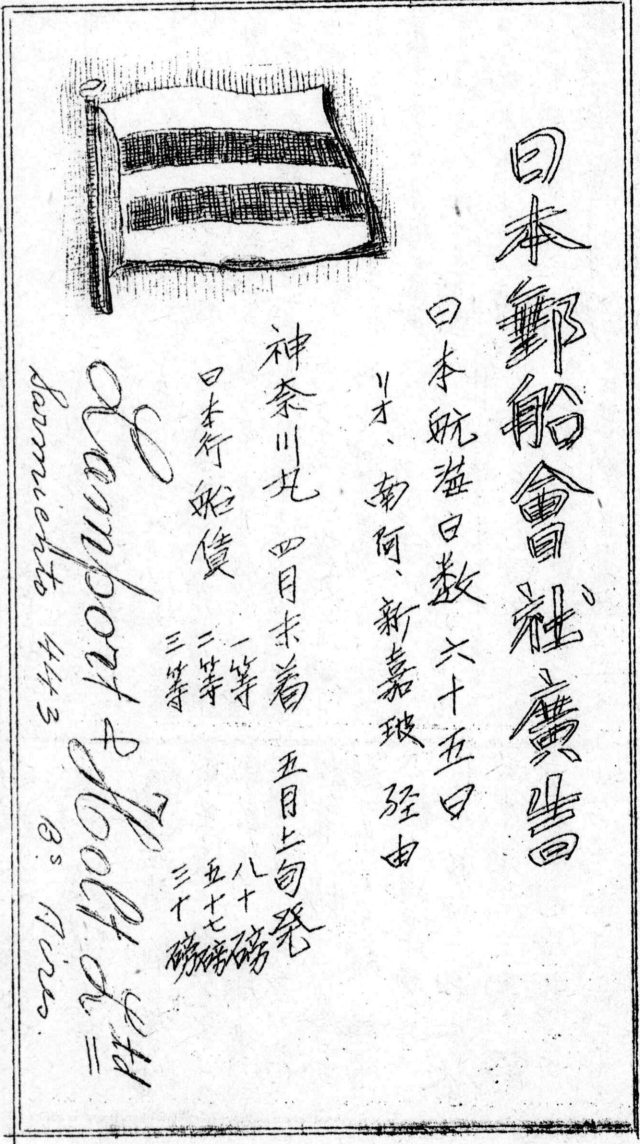 日本郵船會社廣告
日本航海日数 六十五日
リオ、南阿、新嘉玻 経由
神奈川丸 四月末着 五月上旬発
日本行船賃
一等 八十磅
二等 五十七磅
三等 三十磅
Lamport & Holt Ltd
Sarmiento 443 Bs Aires.